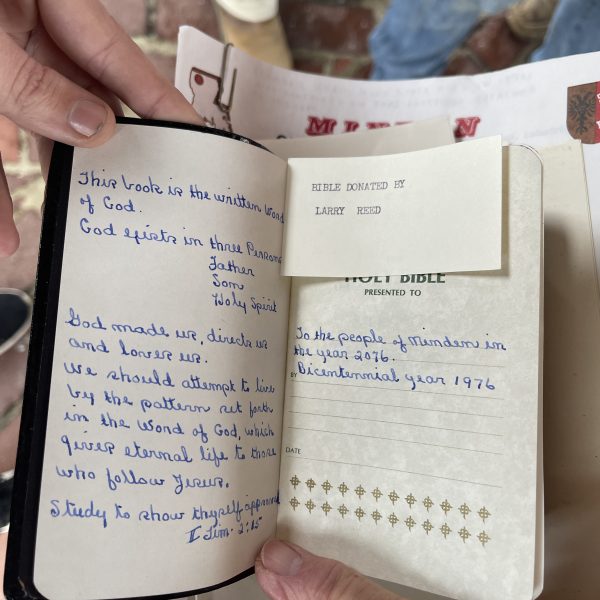 MINDEN
This book is the written Word
of God.
God exists in three Persons
Father
Son
Holy Spirit
God made us, directs us
and loves us.
We should attempt to live
by the pattern set forth
in the Word of God, which
gives eternal life to those
who follow Jesus.
Study to show thyself approved
II Tim. 2:15
BIBLE DONATED BY
LARRY REED
HOLY BIBLE
PRESENTED TO
To the people of Minden in
the year 2076.
BY Bicentennial year 1976
DATE